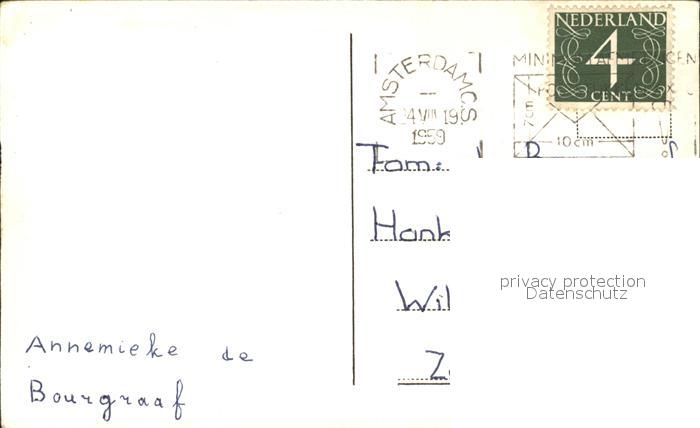 NEDERLAND
4
CENT
AMSTERDAM C.S
4 VIII 19
1959
10 cm
7 cm
Fam.
Hank
Wil
Z
privacy protection
Datenschutz
Annemieke de
Bourgraaf